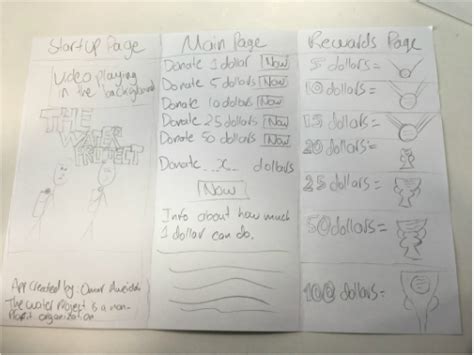 Startup Page
Video playing
in the background
THE
WATER
PROJECT
App created by: Omar
The Water Project is a non-
Profit organization
Main Page
Donate 1 dollar Now
Donate 5 dollars Now
Donate 10 dollars Now
Donate 25 dollars Now
Donate 50 dollars Now
Donate ... x ... dollars
Now
Info about how much
1 dollar can do.
Rewards Page
5 dollars =
10 dollars =
15 dollars =
20 dollars =
25 dollars =
50 dollars =
100 dollars =